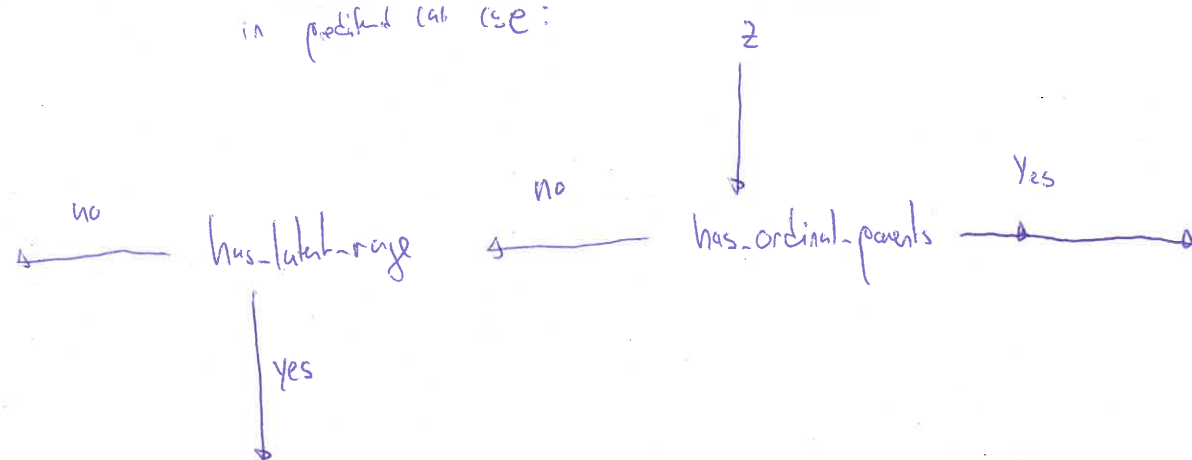 in case:
Z
no
has_latent_range
no
has_ordinal_parents
Yes
yes